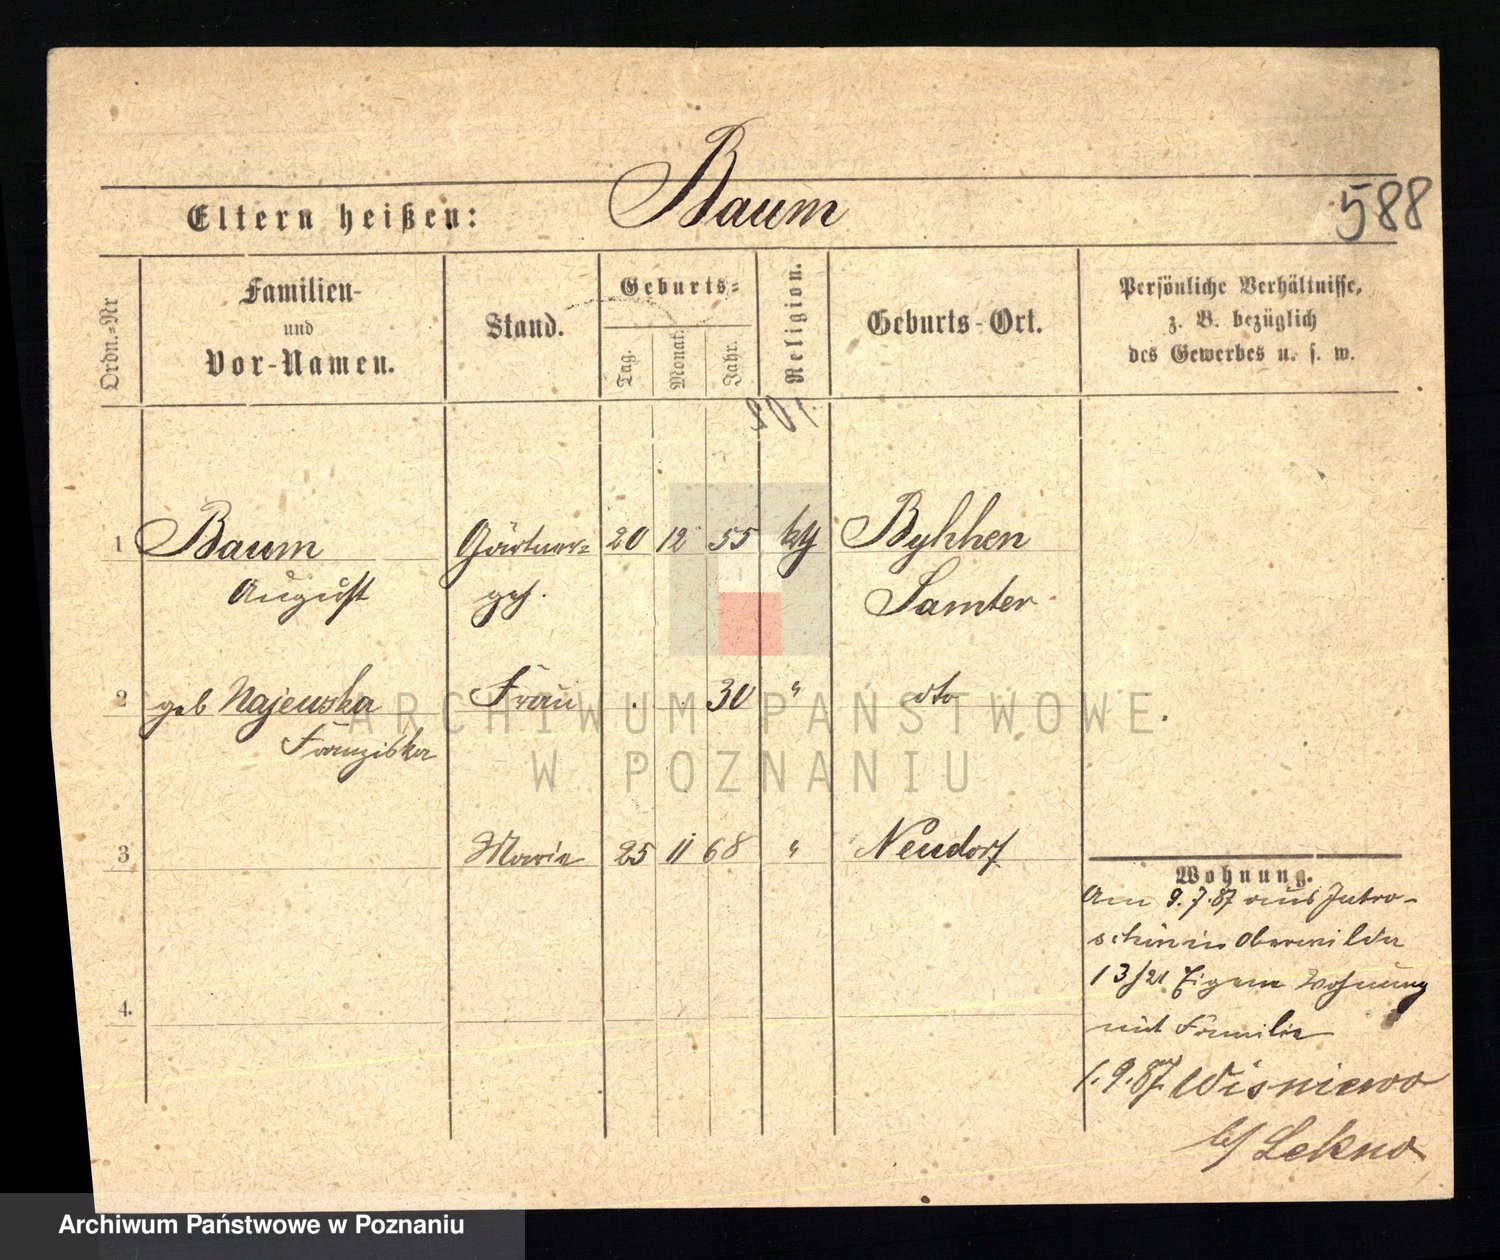 Baum
Eltern heißen:
588
Ordn.=Nr
Familien-
und
Vor-Namen.
Stand.
Geburts=
Tag.
Monat.
Jahr.
Religion.
Geburts-Ort.
Persönliche Verhältnisse,
z. B. bezüglich
des Gewerbes u. s. w.
1 Baum Gärtner= 20 12 55
August Samter
2 geb Najewska Frau 30 " dto
Franziska
3 Marie 25 11 68 " Neudorf
Wohnung.
Am 9.7.87 aus Jutro-
schin in Oberwilda
13/21 Eigene Wohnung
mit Familie
1.9.87. Wisniewo
b/ Lekno
4.
ARCHIWUM PAŃSTWOWE
W POZNANIU
Archiwum Państwowe w Poznaniu